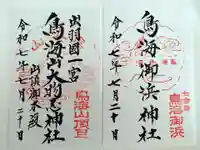 七合目
鳥海御浜
鳥海御浜神社
令和七年七月二十日
出羽國一宮
鳥海山大物忌神社
山頂御本殿
令和七年七月二十日